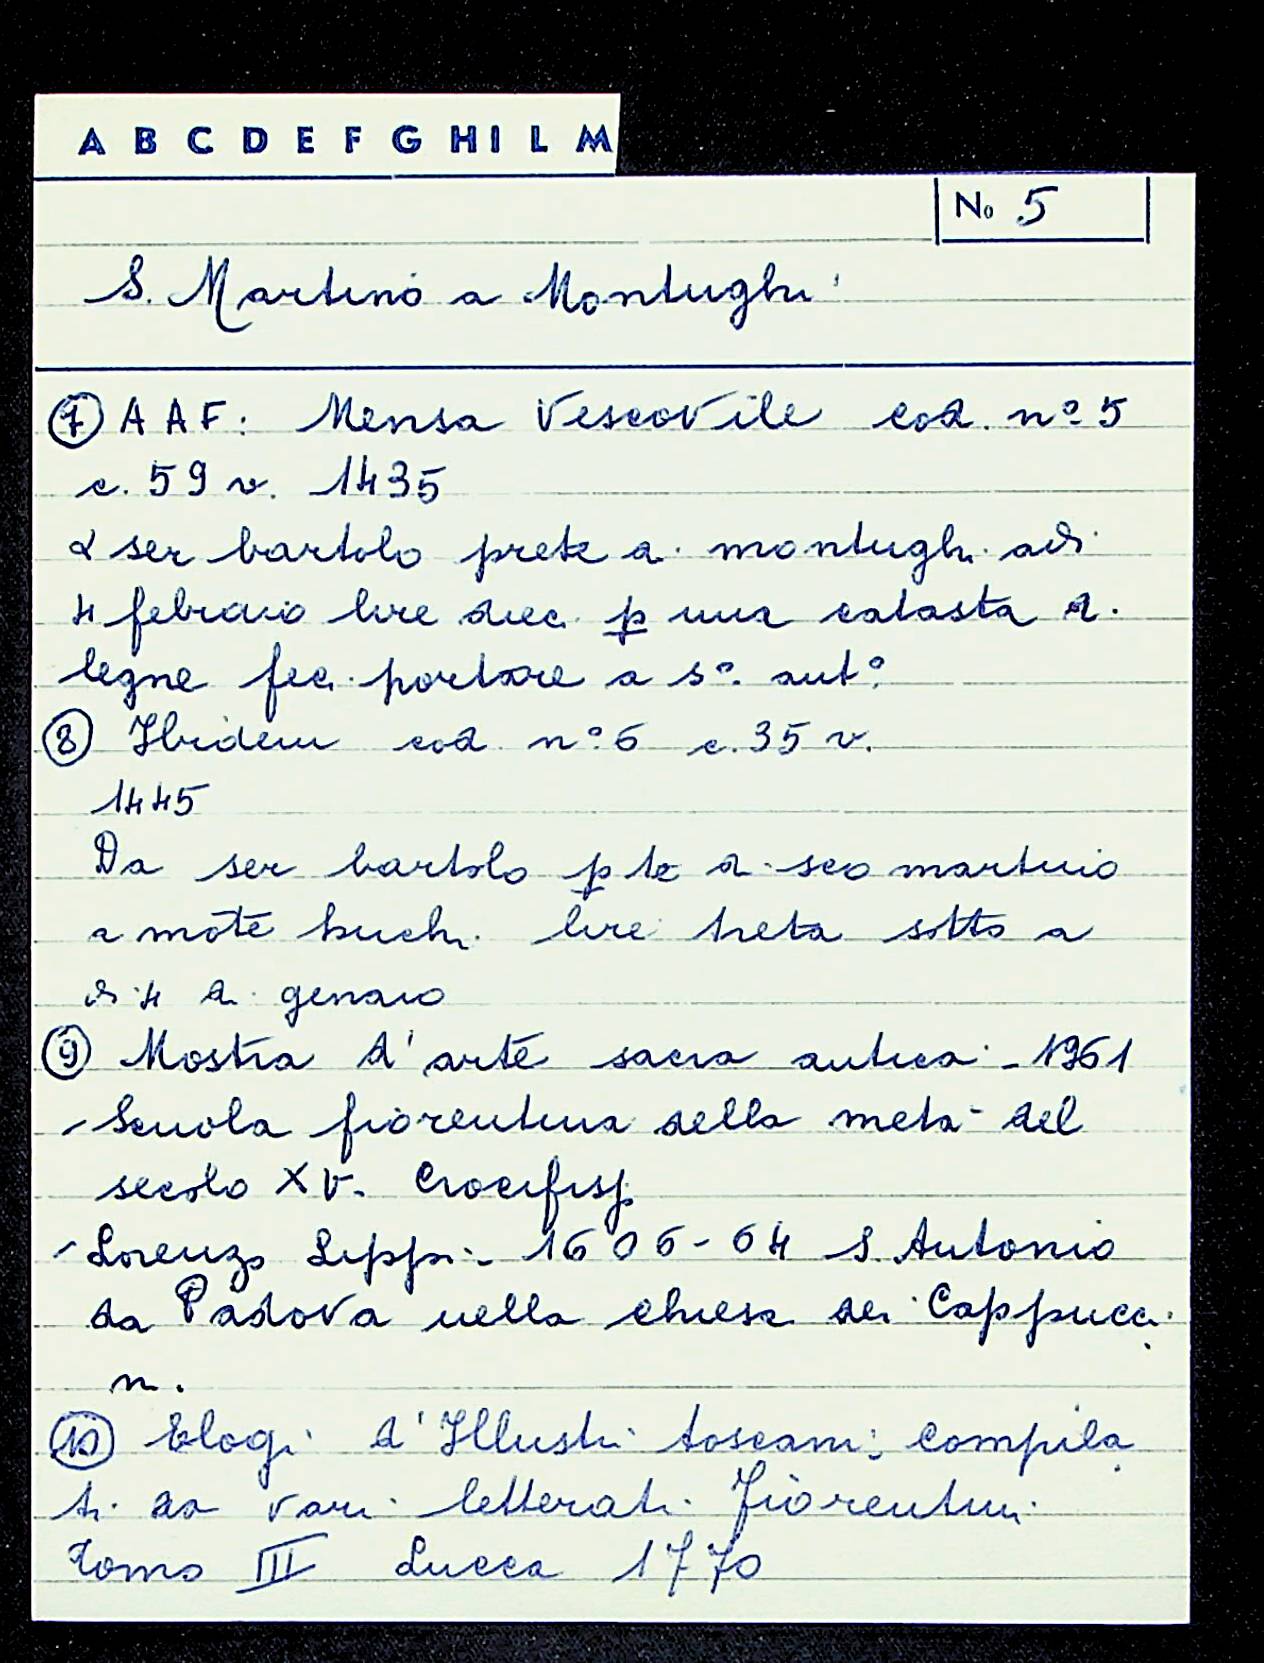 A B C D E F G H I L M
No 5
S. Martino a Montughi
⑦ A A F: Mensa Vescovile cod. n° 5
c. 59 v. 1435
ser bartolo prete a montughi adi
4 febraio lire dieci p una catasta di
legne feci portare a s°. ant°
⑧ Ibidem cod n° 6 c. 35 v.
1445
Da ser bartolo p te di sco martino
a mōte huchi lire treta sotto a
di 4 di genaio
⑨ Mostra d'arte sacra antica - 1961
- Scuola fiorentina della metà del
secolo XV. Crocifisso
- Lorenzo Lippi - 1606-64 S. Antonio
da Padova nella chiesa dei Cappucci
ni.
⑩ Elogi d'Illustri toscani, compila
ti da vari letterati Fiorentini
Tomo III Lucca 1770